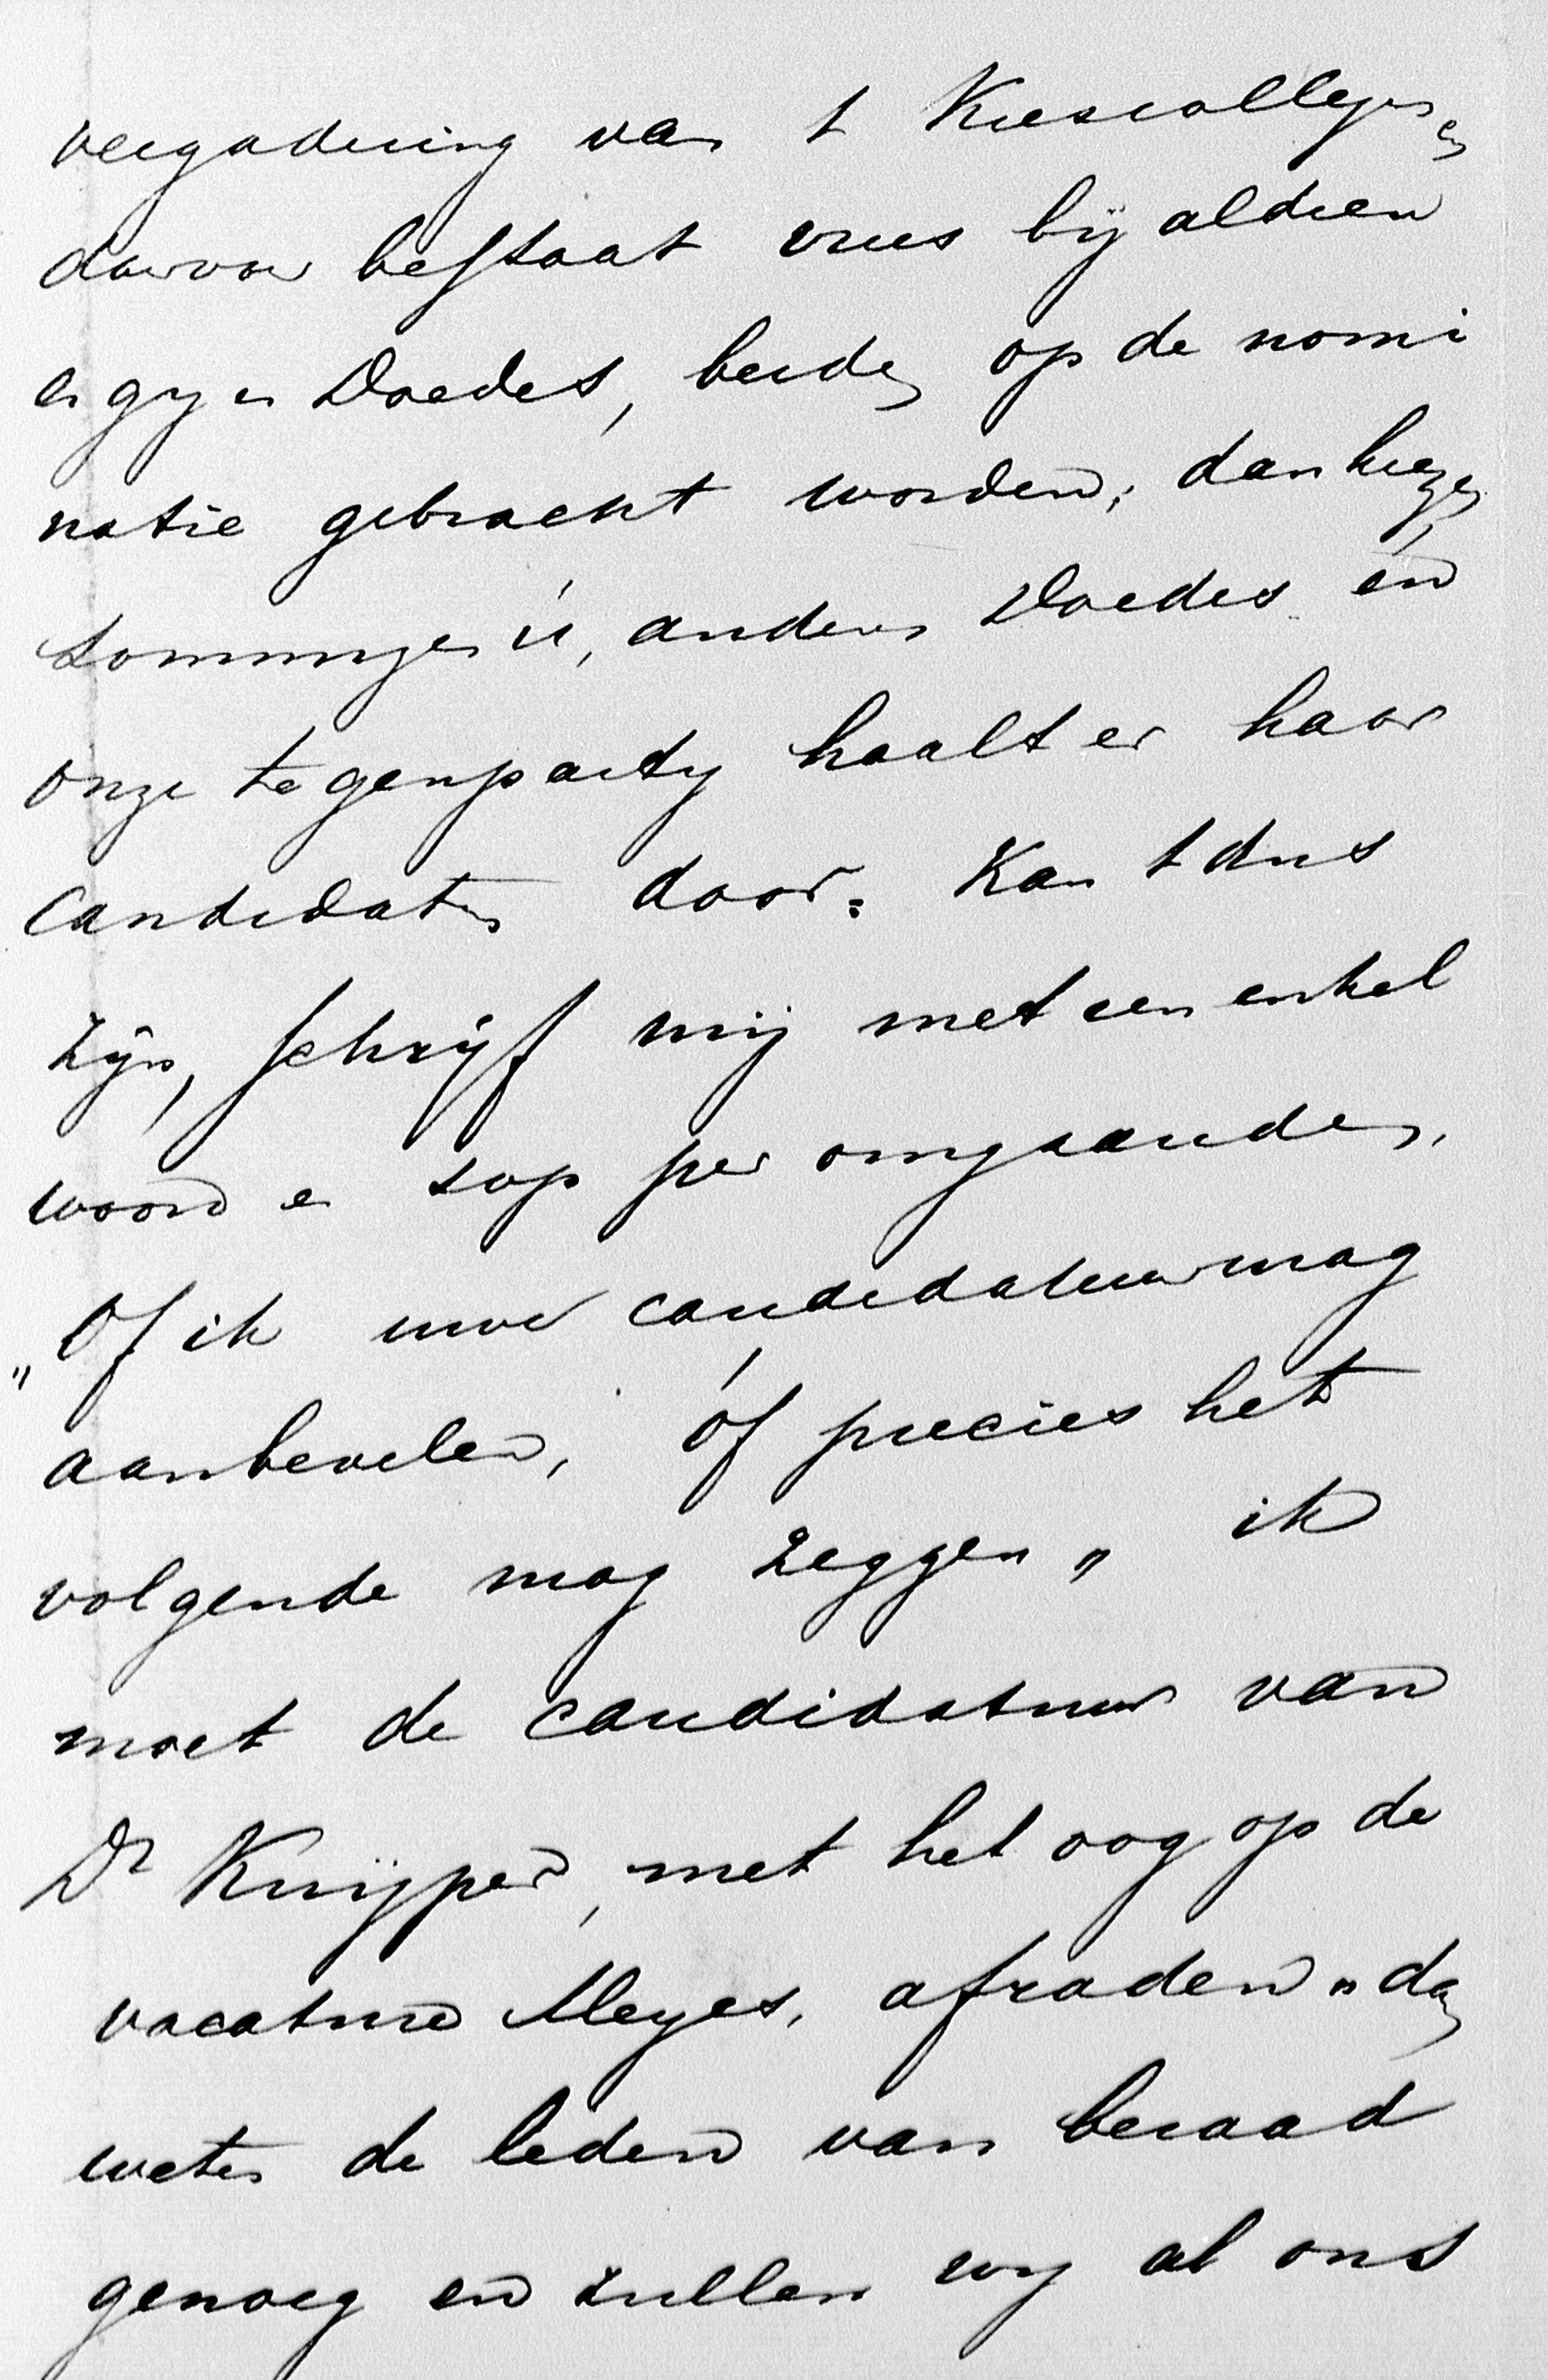 vergadering van t Kiescollege en
daarvoor bestaat vrees bij aldien
en gy en Doedes, beiden op de nomi
natie gebracht worden; dan kiezen
sommigen ú, anderen Doedes en
onze tegenparty haalt er haar
candidaten door. Kan t dus
zijn, schrijf mij met een enkel
woord en per omgaanden,
"Of ik uwe candidatuur mag
aanbevelen, óf precies het
volgende mag zeggen „ ik
moet de candidatuur van
Dr Kuijper, met het oog op de
vacature Meyes, afraden" dan
weten de leden van beraad
genoeg en zullen wy al ons